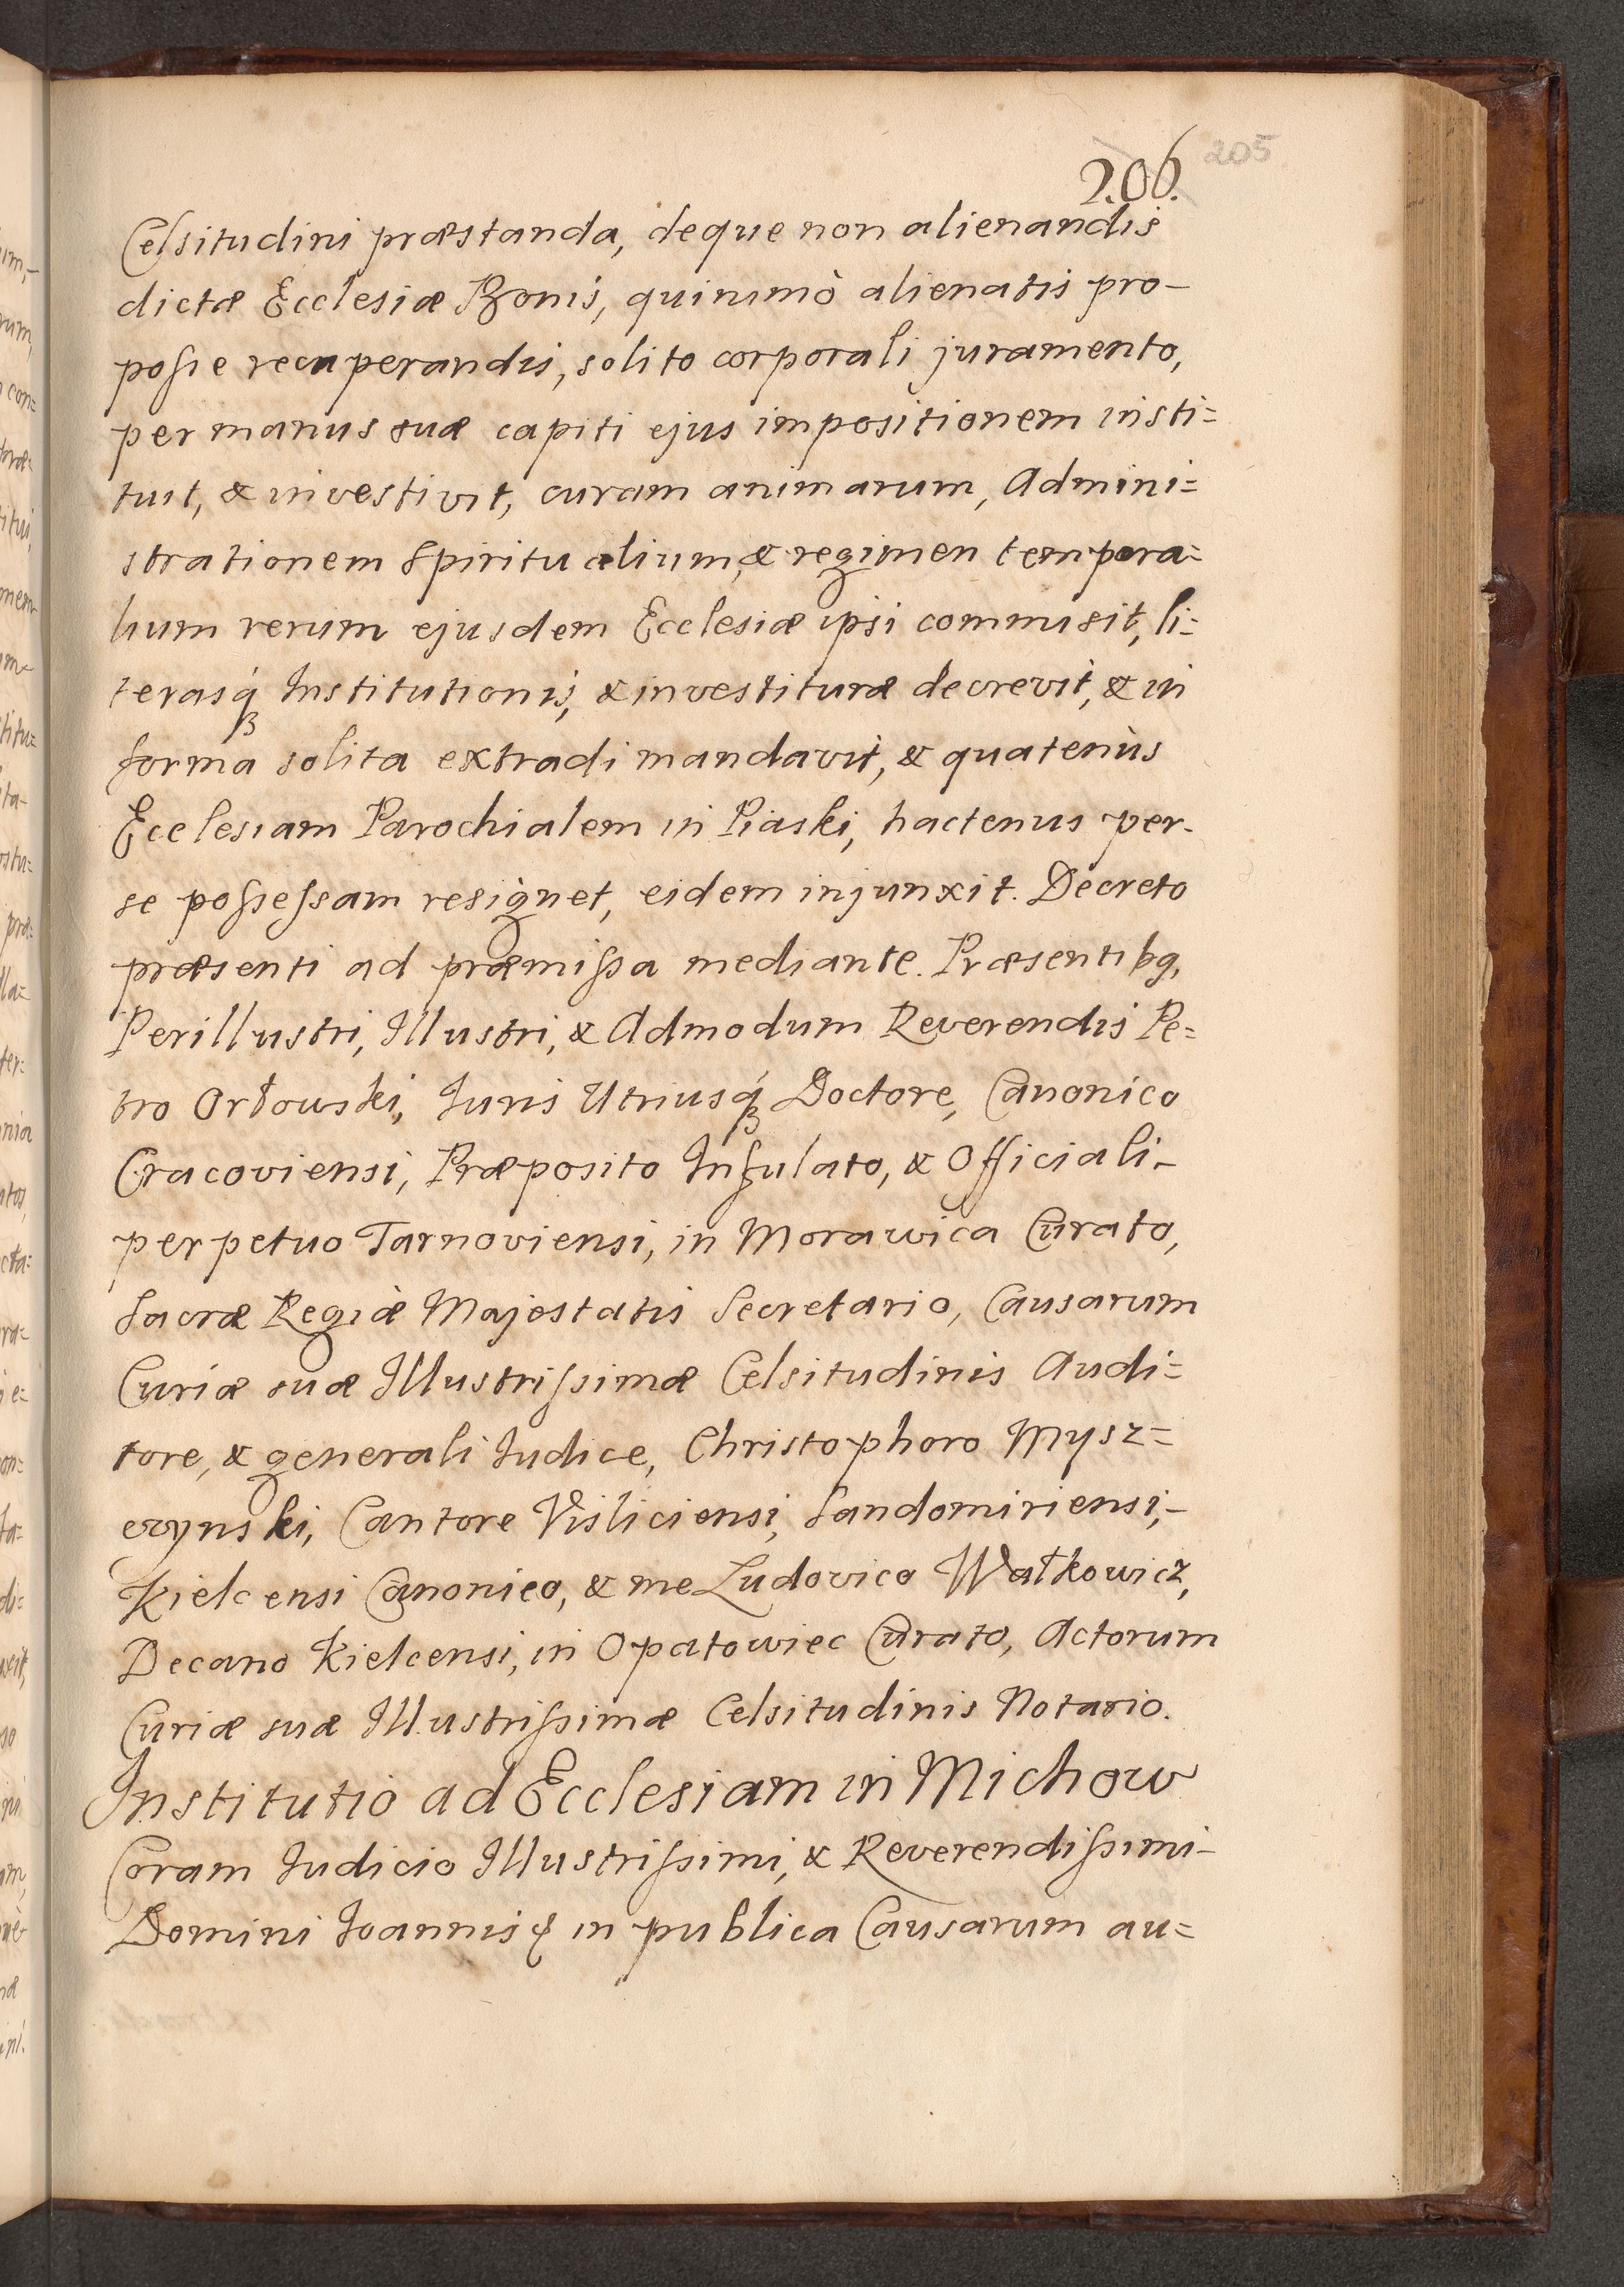 206. 205
Celsitudini præstanda, deque non alienandis
dictæ Ecclesiæ Bonis, quinimò alienatis pro-
posse recuperandis, solito corporali juramento,
per manus suæ capiti ejus impositionem insti=
tuit, & investivit, curam animarum, Admini=
strationem Spiritualium, & regimen tempora=
lium rerum ejusdem Ecclesiæ ipsi commisit, li=
terasq́ Institutionis, & investituræ decrevit, & in
forma solita extradi mandavit, & quatenùs
Ecclesiam Parochialem in Piaski, hactenus per-
se possessam resignet, eidem injunxit. Decreto
præsenti ad præmissa mediante. Præsentibq,
Perillustri, Illustri, & Admodum Reverendis Pe=
tro Orłowski, Iuris Utriusq́ Doctore, Canonico
Cracoviensi, Præposito Infulato, & Officiali-
perpetuo Tarnoviensi, in Morawica Curato,
Sacræ Regiæ Majestatis Secretario, Causarum
Curiæ suæ Illustrissimæ Celsitudinis Audi=
tore, & generali Iudice, Christophoro Mysz=
czynski, Cantore Visliciensi, Sandomiriensi,-
Kielcensi Canonico, & me Ludovico Watkowicz,
Decano Kielcensi, in Opatowiec Curato, Actorum
Curiæ suæ Illustrissimæ Celsitudinis Notario.
Institutio ad Ecclesiam in Michow
Coram Iudicio Illustrissimi, & Reverendissimi-
Domini Ioannis & in publica Causarum au=